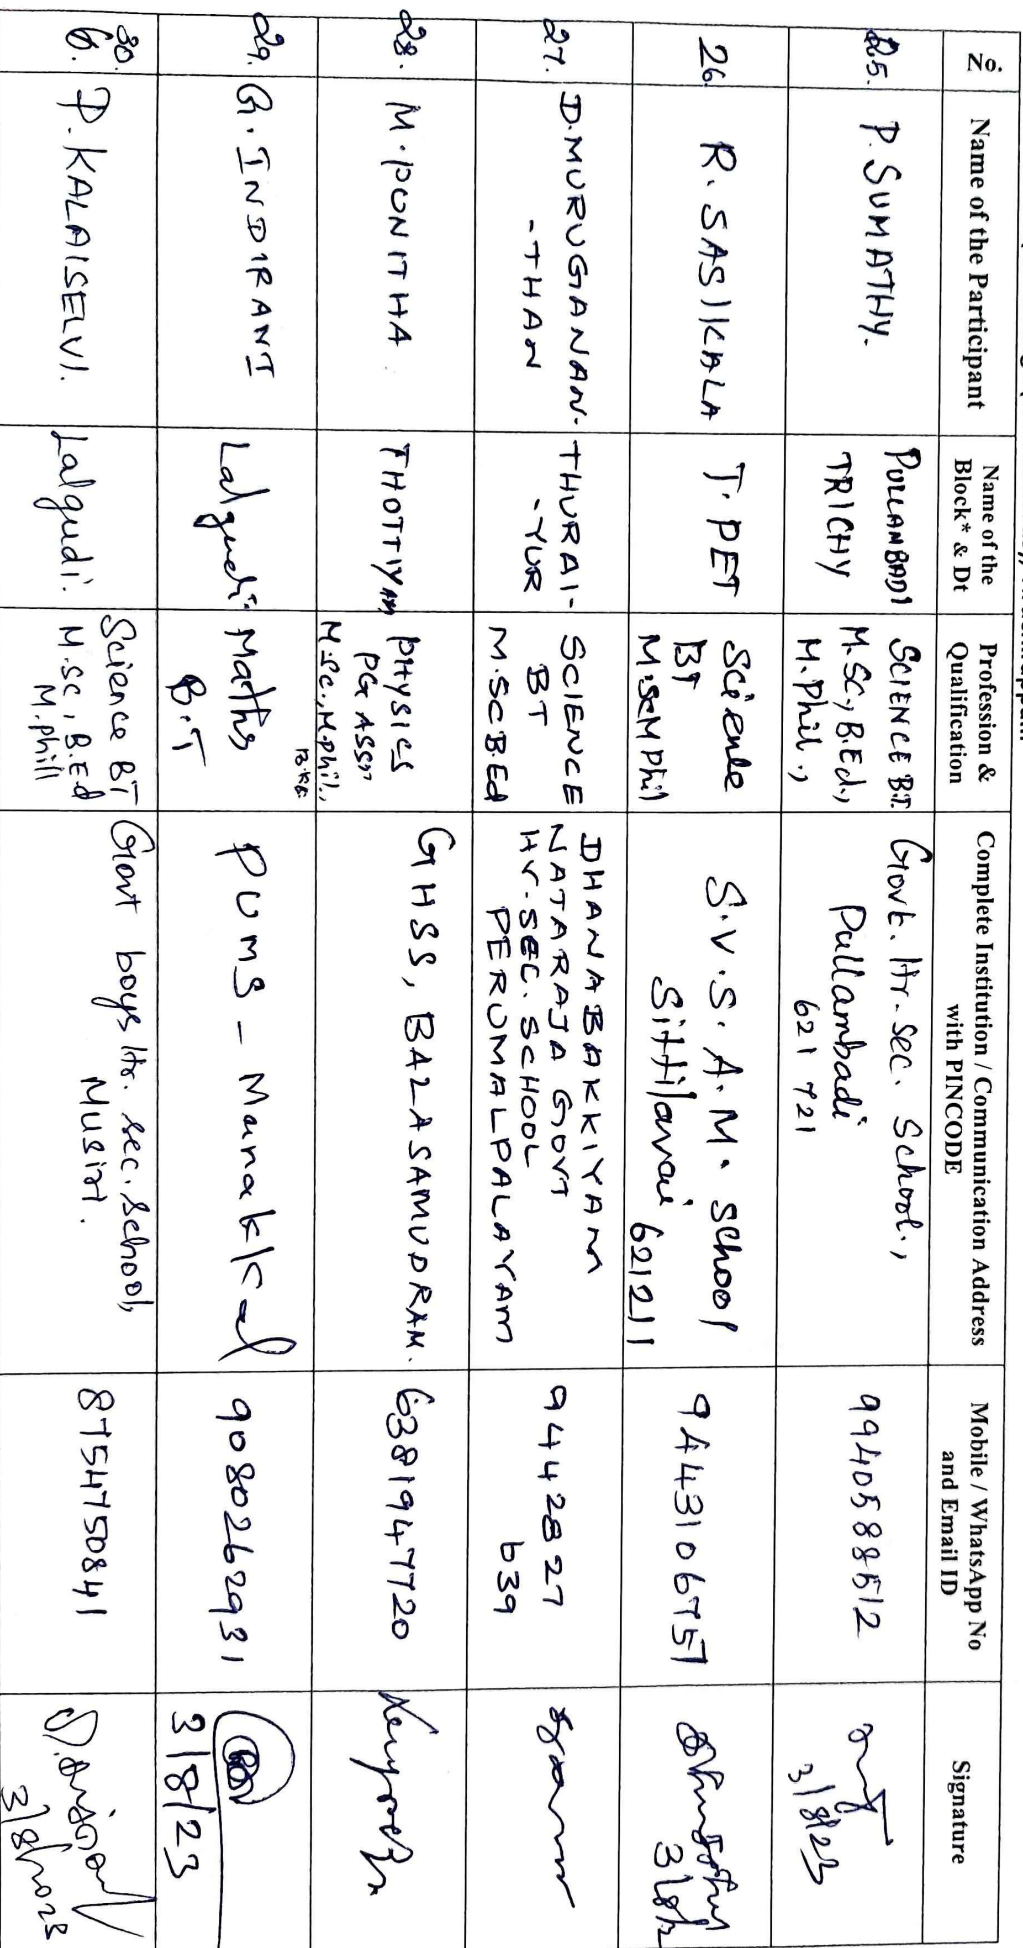 No.
Name of the Participant
Name of the
Block* & Dt
Profession &
Qualification
Complete Institution / Communication Address
with PINCODE
Mobile / WhatsApp No
and Email ID
Signature
25.
P. SUMATHY.
PULLAMBADI
TRICHY
SCIENCE B.T.
M.SC., B.Ed.,
M.Phil.,
Govt. Hr. Sec. School.,
Pullambadi
621 721
9940588512
3/8/23
26.
R. SASIKALA
T. PET
Science
BT
M.Sc M Phil
S.V.S.A.M. School
Sittilarai 621211
9443106757
27.
D. MURUGANAN-
-THAN
THURAI-
-YUR
SCIENCE
BT
M.SC B.Ed
DHANABAKKIYAM
NATARAJA GOVT
HR. SEC. SCHOOL
PERUMALPALAYAM
94428 27
639
28.
M. PUNITHA
THOTTIYAM
PHYSICS
PG ASST
M.Sc., M.phil.,
GHSS, BALASAMUDRAM.
6381947720
29.
G. INDIRANI
Lalgudi.
Maths
B.T
PUMS - Manakkal
9080262931
3/8/23
30.
6.
P. KALAISELVI.
Lalgudi.
Science BT
M.SC, B.Ed
M.phill
Govt boys Hr. sec. School,
Musiri.
8754750841
3/8/2023